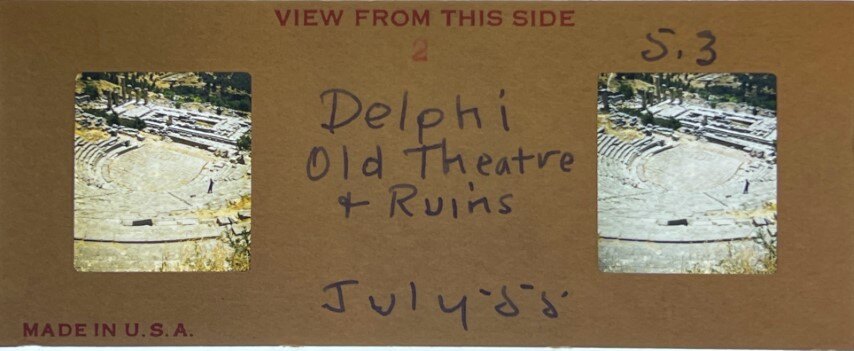 VIEW FROM THIS SIDE
2
5.3
Delphi
Old Theatre
+ Ruins
July-55
MADE IN U.S.A.